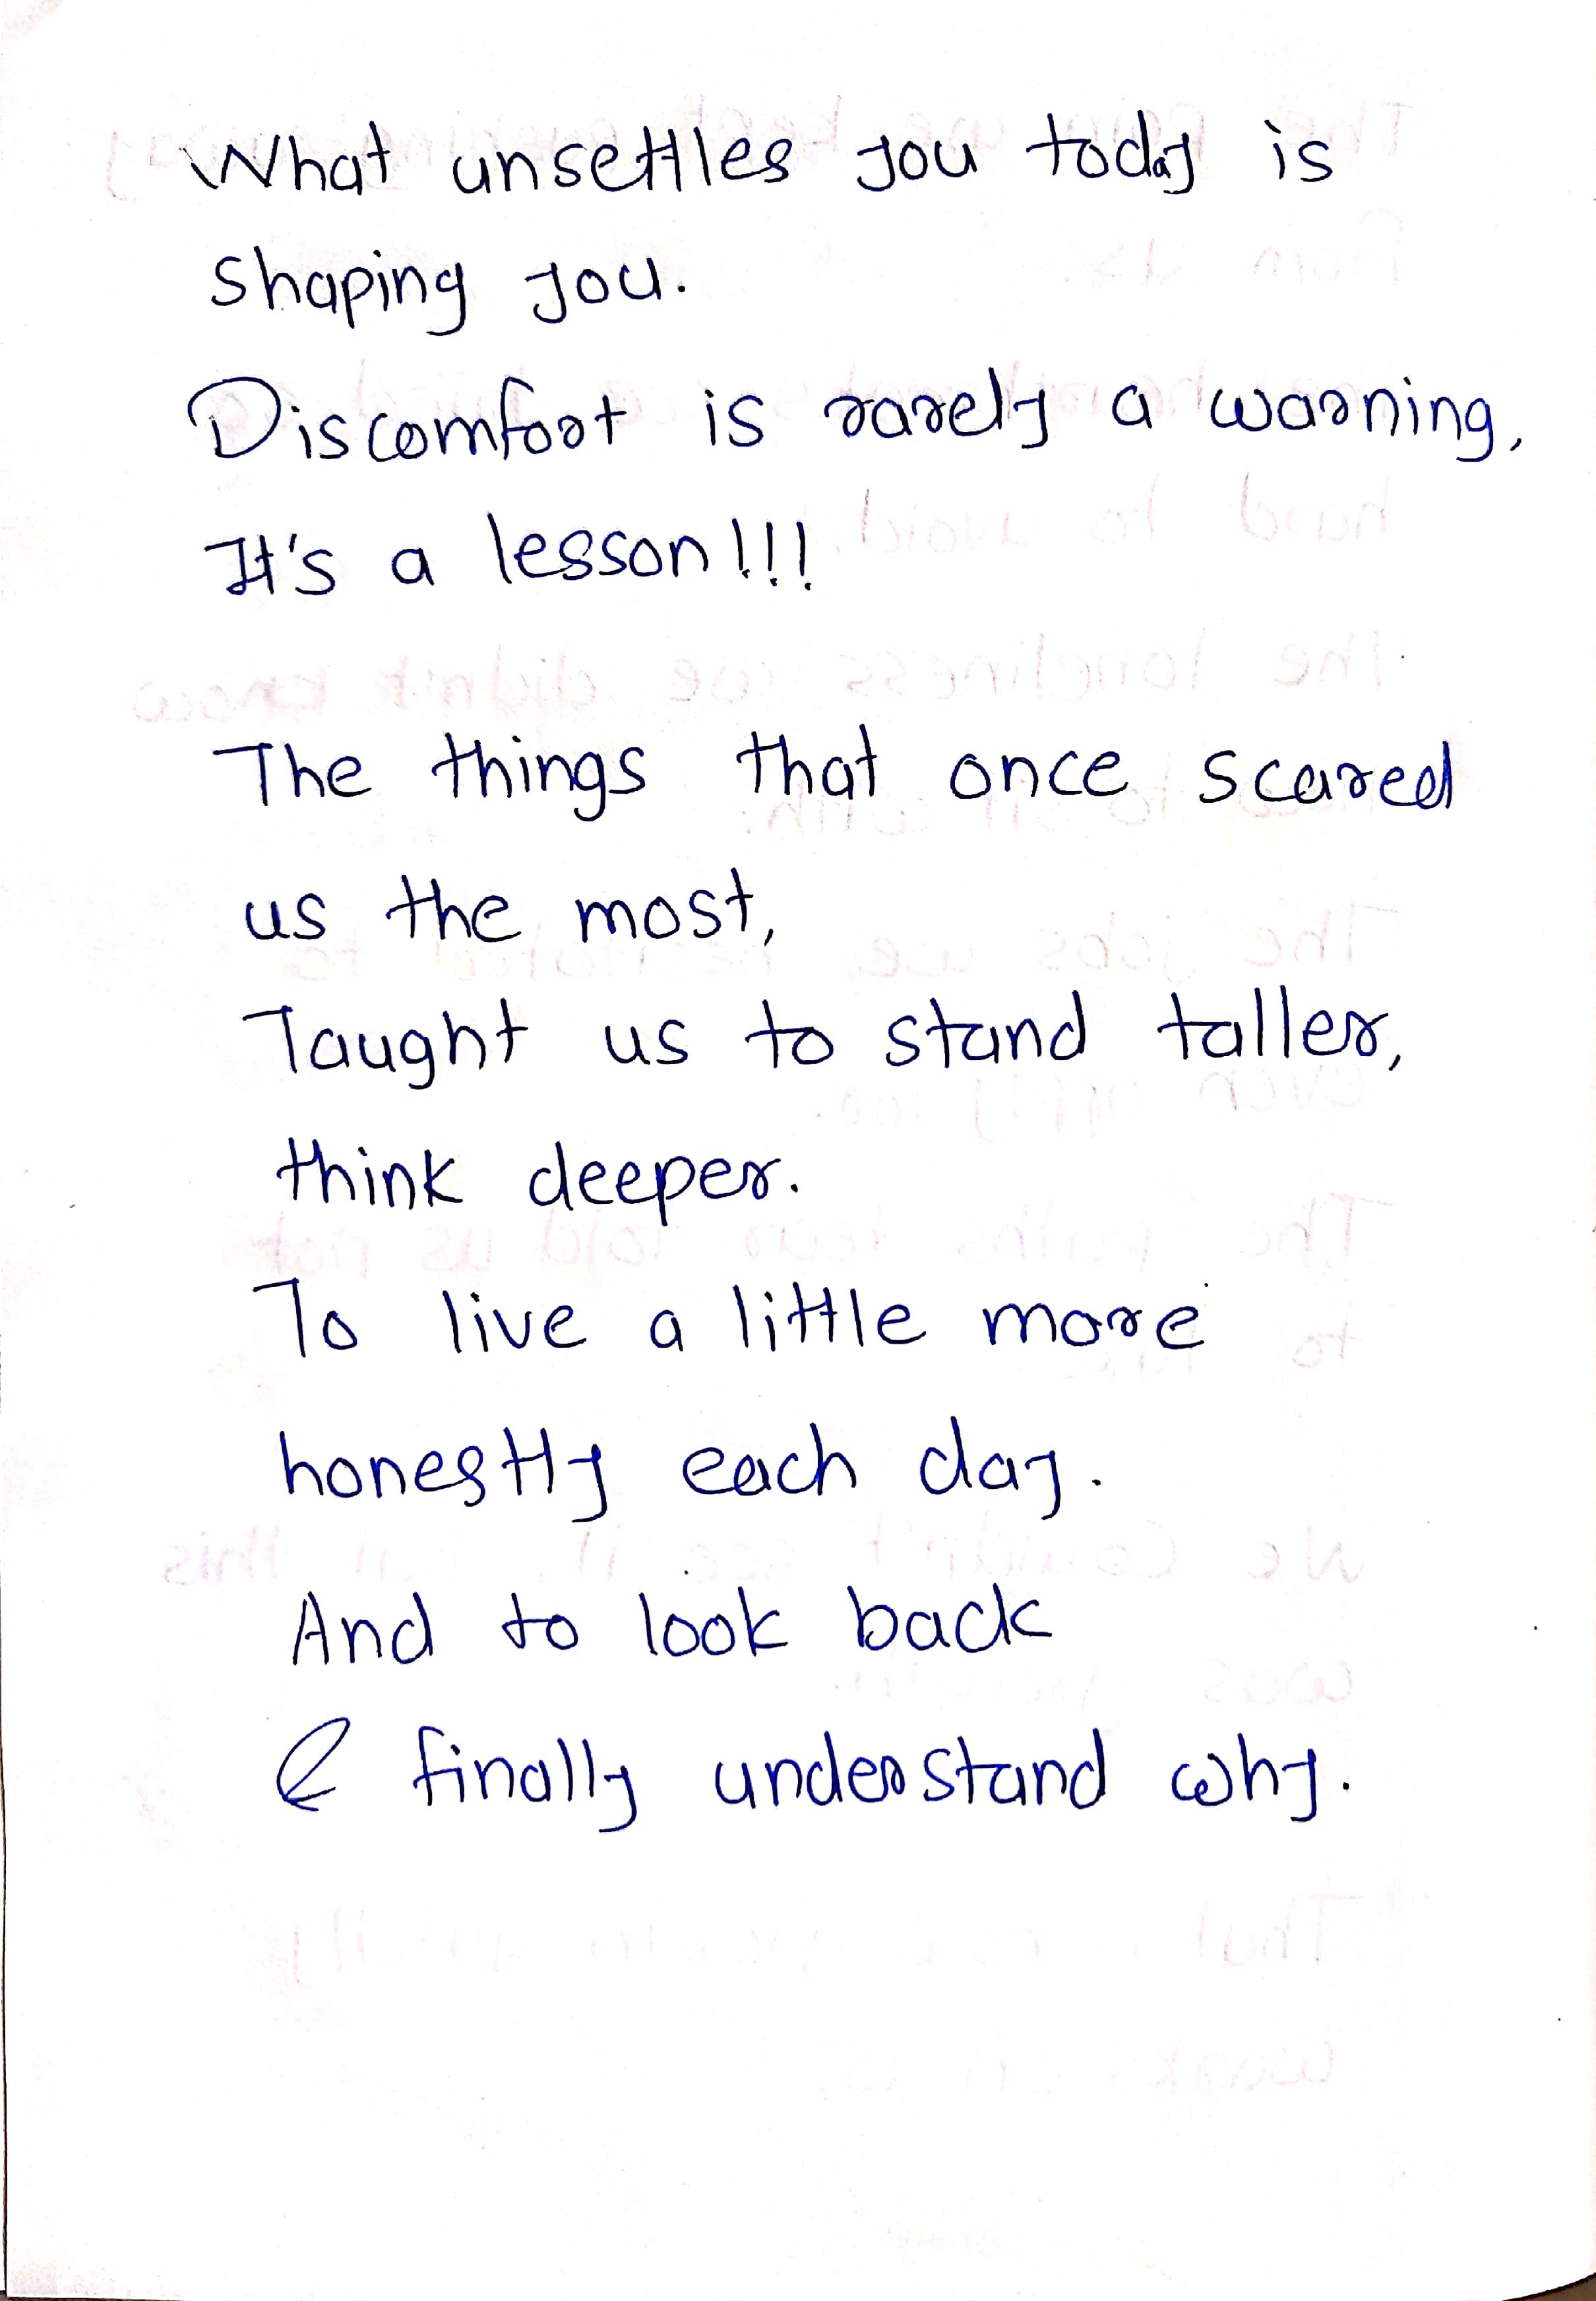 What unsettles you today is
shaping you.
Discomfort is rarely a warning,
It's a lesson!!!
The things that once scared
us the most,
Taught us to stand taller,
think deeper.
To live a little more
honestly each day.
And to look back
& finally understand why.